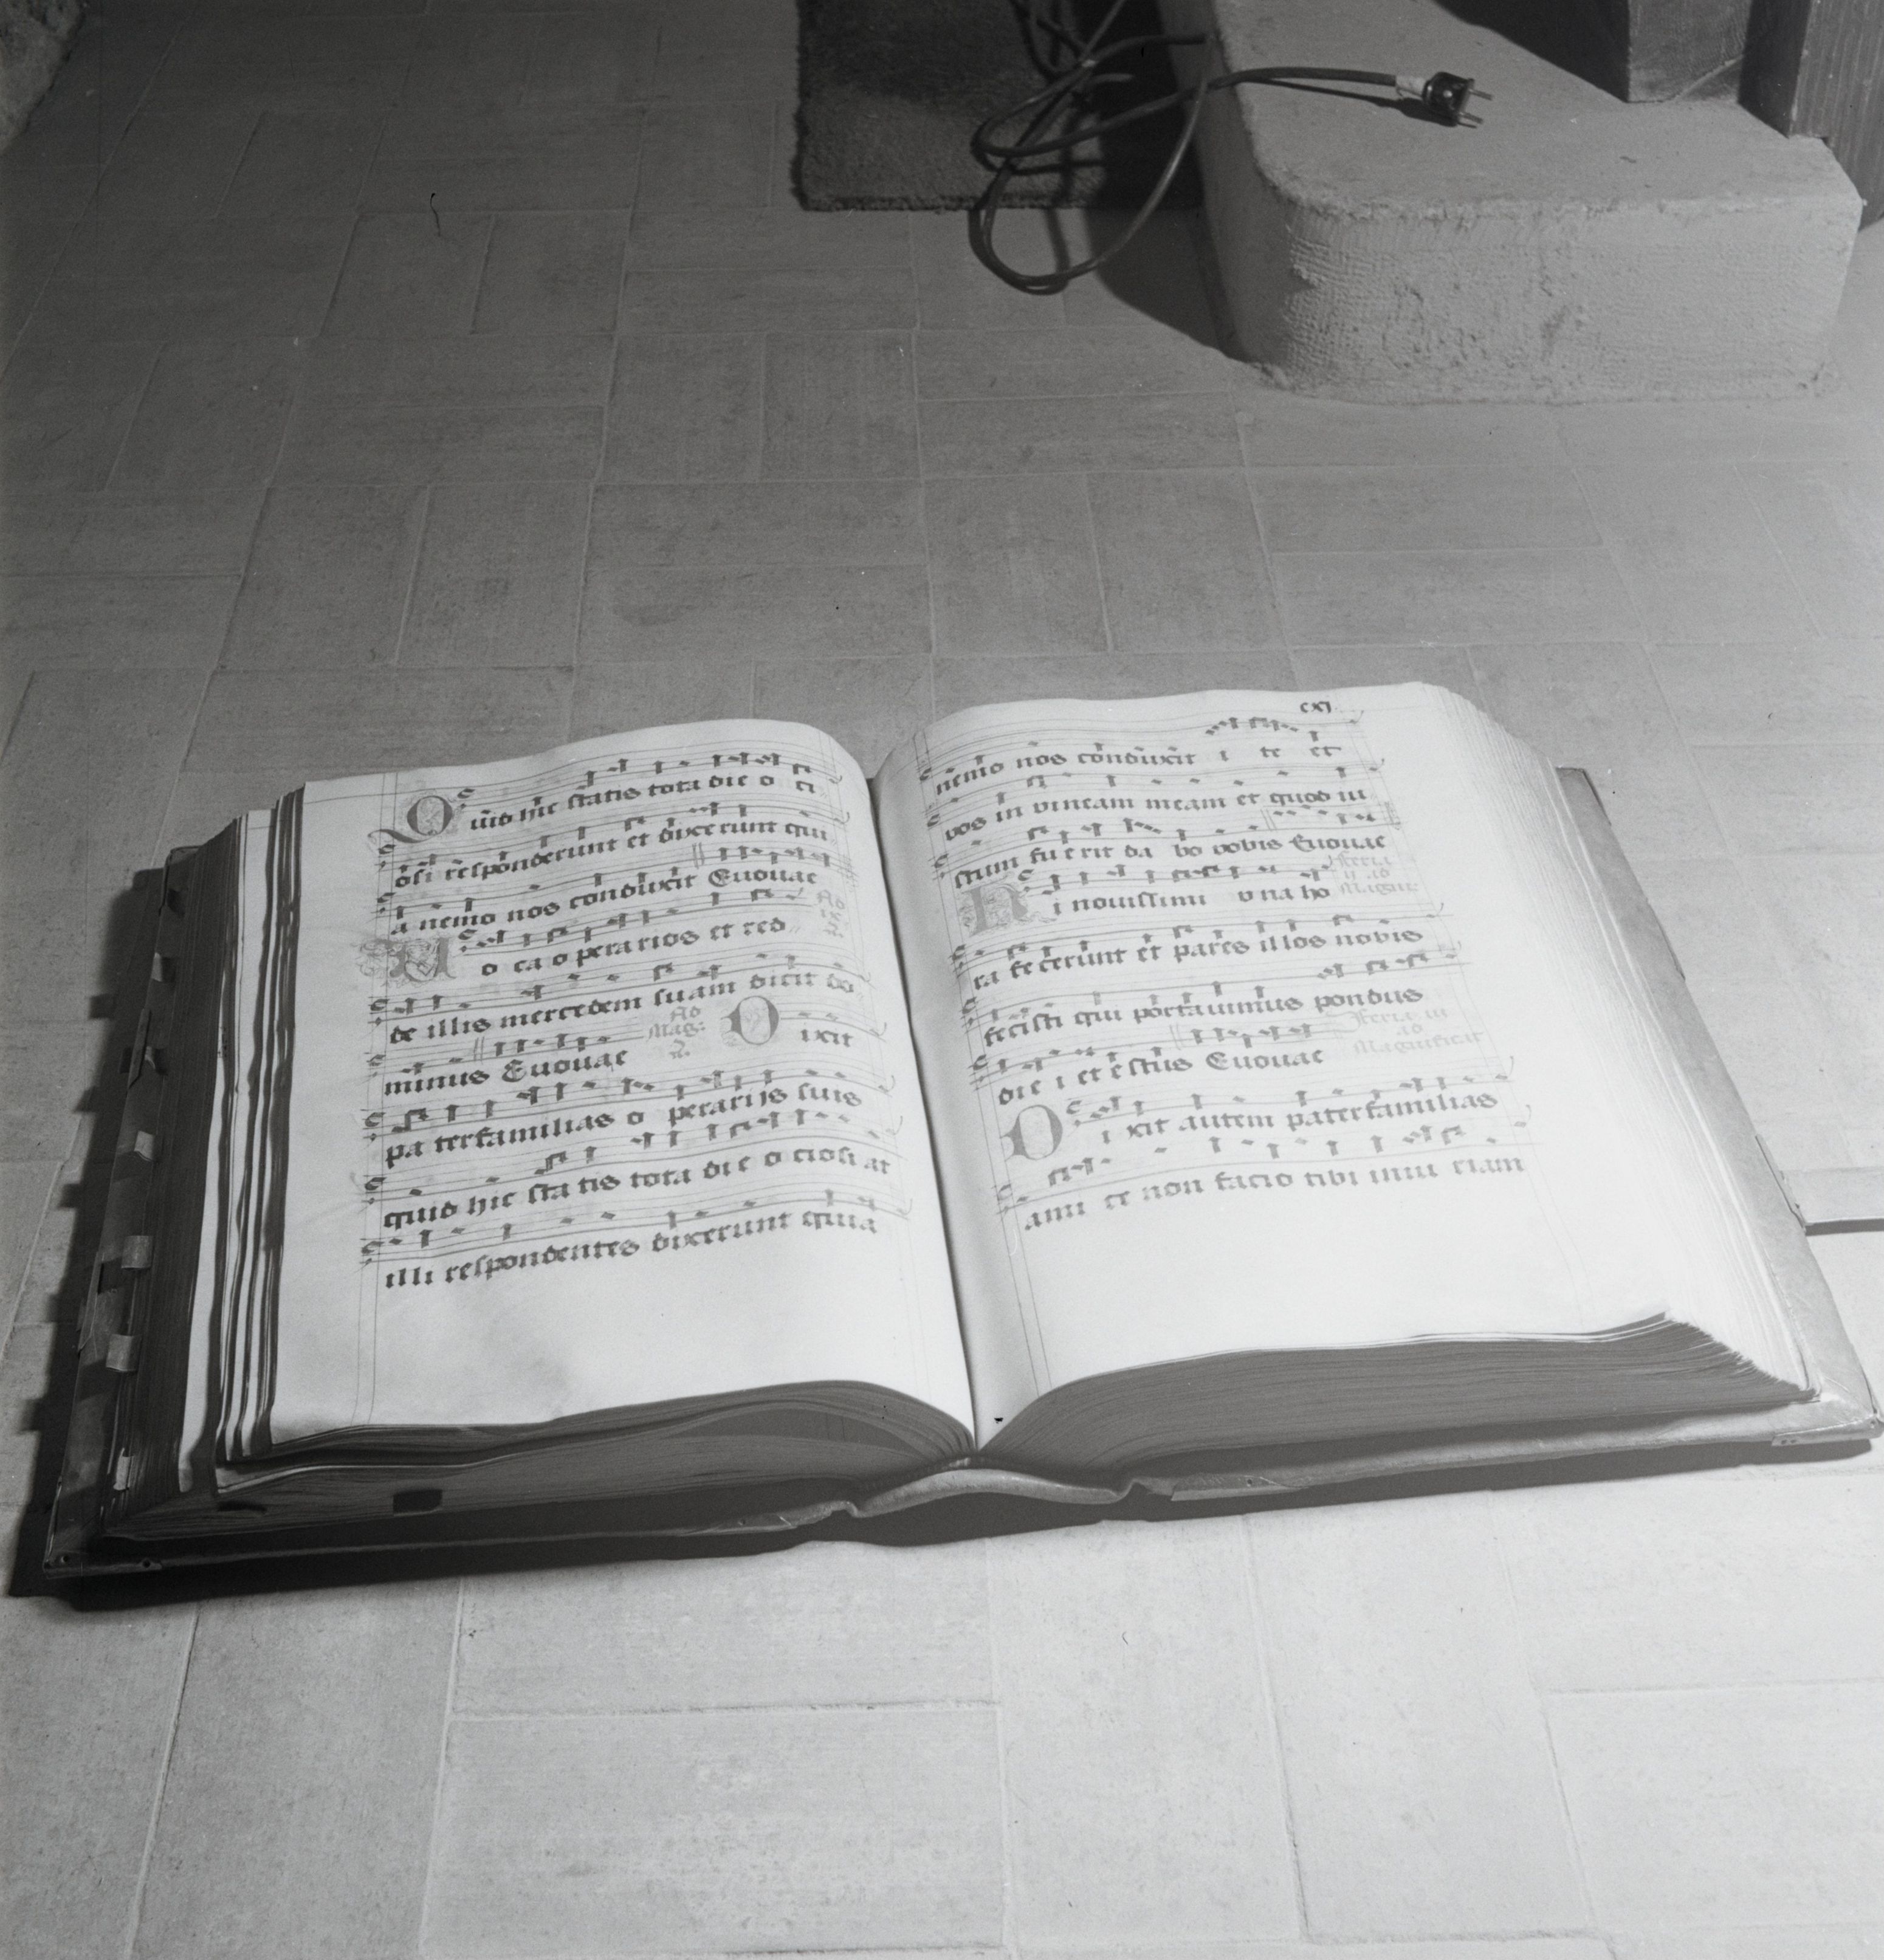 Quid hic statis tota die o ci
osi responderunt et dixerunt qui
a nemo nos conduxit Euouae
Uo ca o pera rios et red
Ad
de illis mercedem suam dicit do
minus Euouae
Ad
Mag:
Dixit
pa terfamilias o perarijs suis
quid hic sta tis tota die o ciosi at
illi respondentes dixerunt quia
cxj
nemo nos conduxit i te et
vos in vineam meam et quod iu
stum fu e rit da bo vobis Euouae
Feria
ij ad
Magni:
Hi nouissimi v na ho
ra fe cerunt et pares illos nobis
fecisti qui portauimus pondus
die i et e stus Euouae
Feria iij
ad
Magnificat
Di xit autem paterfamilias
ami ce non facio tibi iniu riam